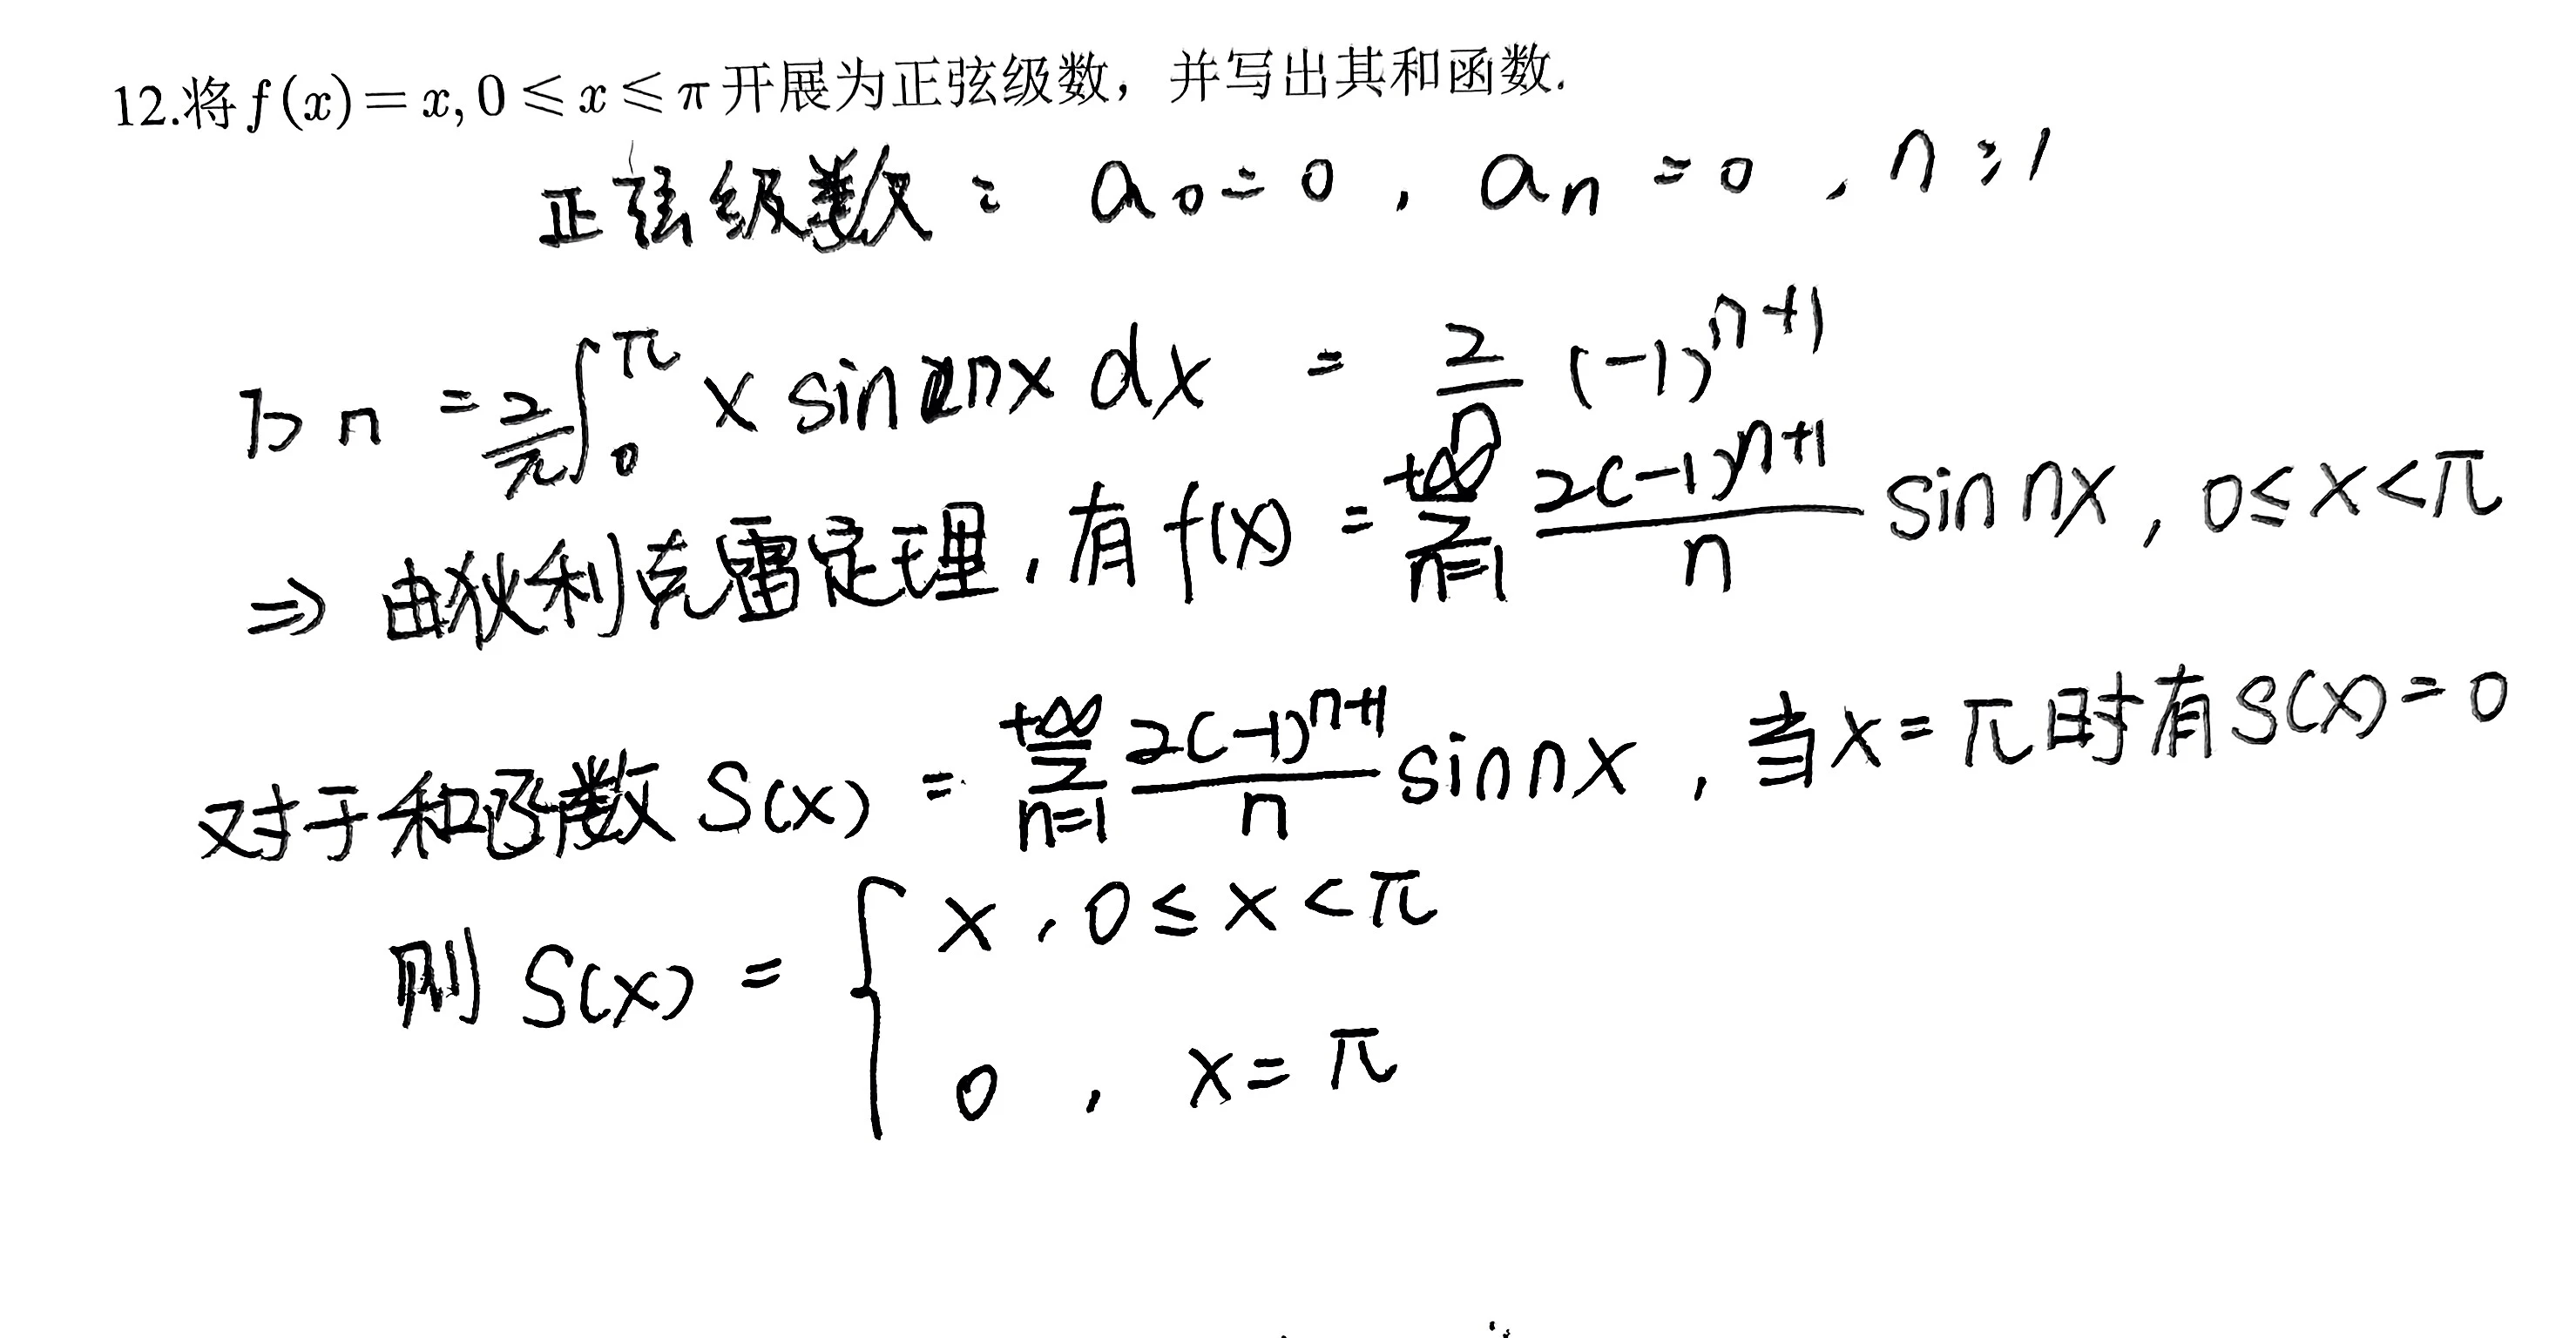 12.将f(x)=x,0⩽x⩽π开展为正弦级数，并写出其和函数.
正弦级数： a₀=0，aₙ=0，n≥1
bₙ = 2/π ∫₀^π x sin nx dx = 2/n (-1)^(n+1)
⇒ 由狄利克雷定理，有 f(x) = ∑_{n=1}^{+∞} 2(-1)^(n+1)/n sin nx，0≤x<π
对于和函数 S(x) = ∑_{n=1}^{+∞} 2(-1)^(n+1)/n sin nx，当x=π时有S(x)=0
则 S(x) = { x，0≤x<π
0，x=π